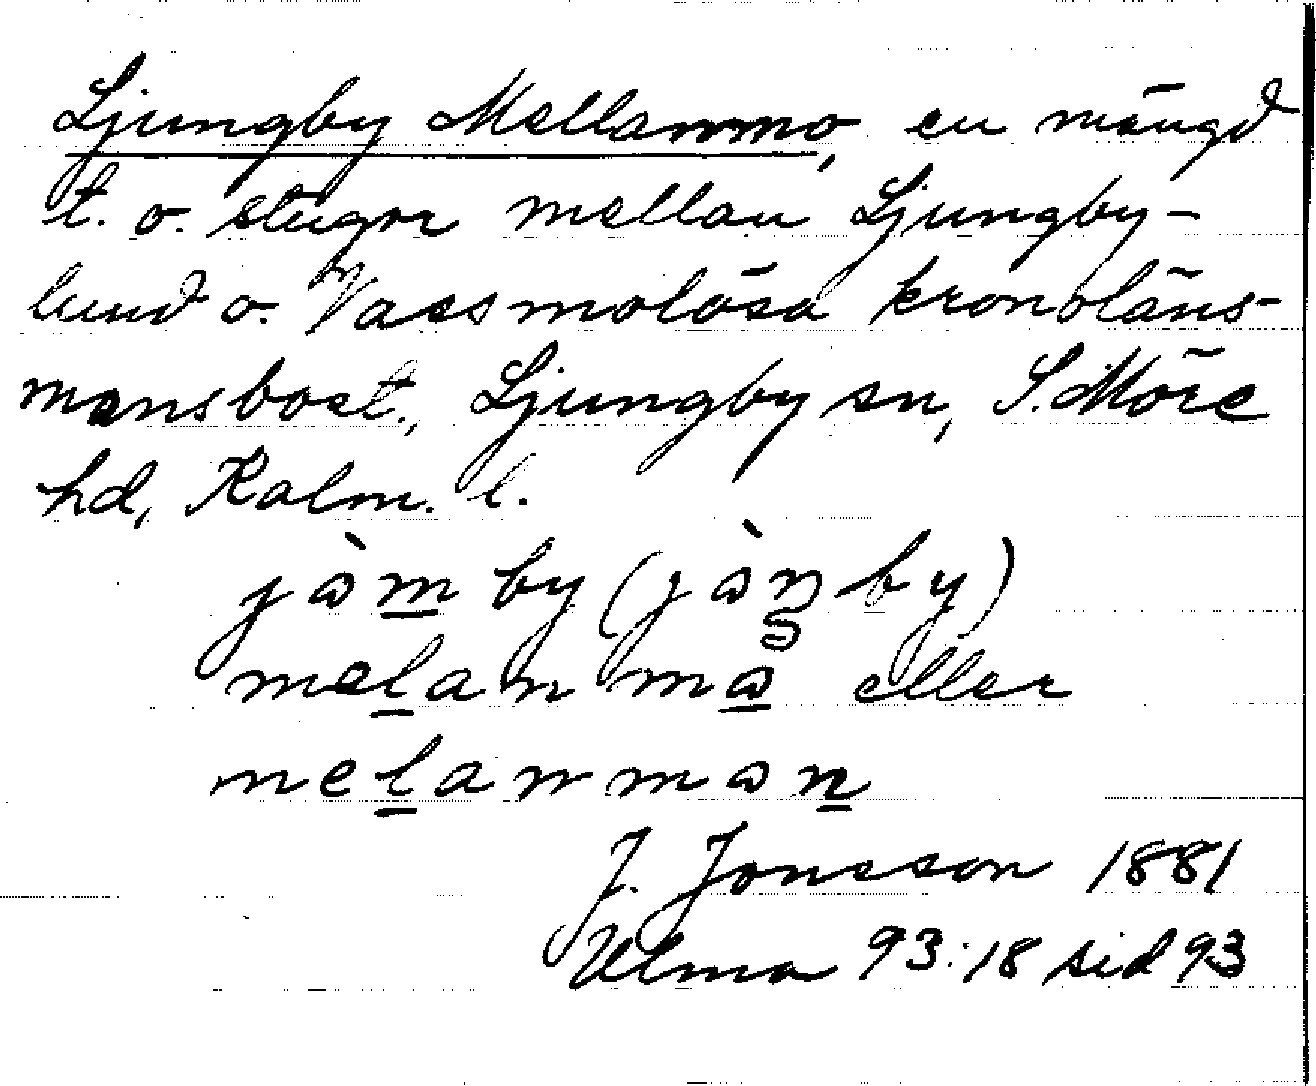 Ljungby Mellanmo, en mängd
t. o. stugor mellan Ljungby-
lund o. Vassmolösa kronoläns-
mansbost., Ljungby sn, S. Möre
hd, Kalm. l.
jòm by (jòŋ by)
melan mo eller
melanmon
J. Jonsson 1881
Ulma 93:18 sid 93